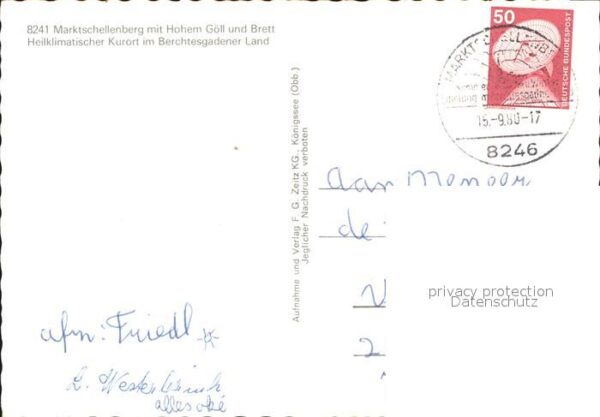 8241 Marktschellenberg mit Hohem Göll und Brett
Heilklimatischer Kurort im Berchtesgadener Land
50
DEUTSCHE BUNDESPOST
15.-9.80-17
8246
Aufnahme und Verlag F. G. Zeitz KG., Königssee (Obb.)
Jeglicher Nachdruck verboten
Aan
de
V
2
privacy protection
Datenschutz
afn: Friedl
alles oké